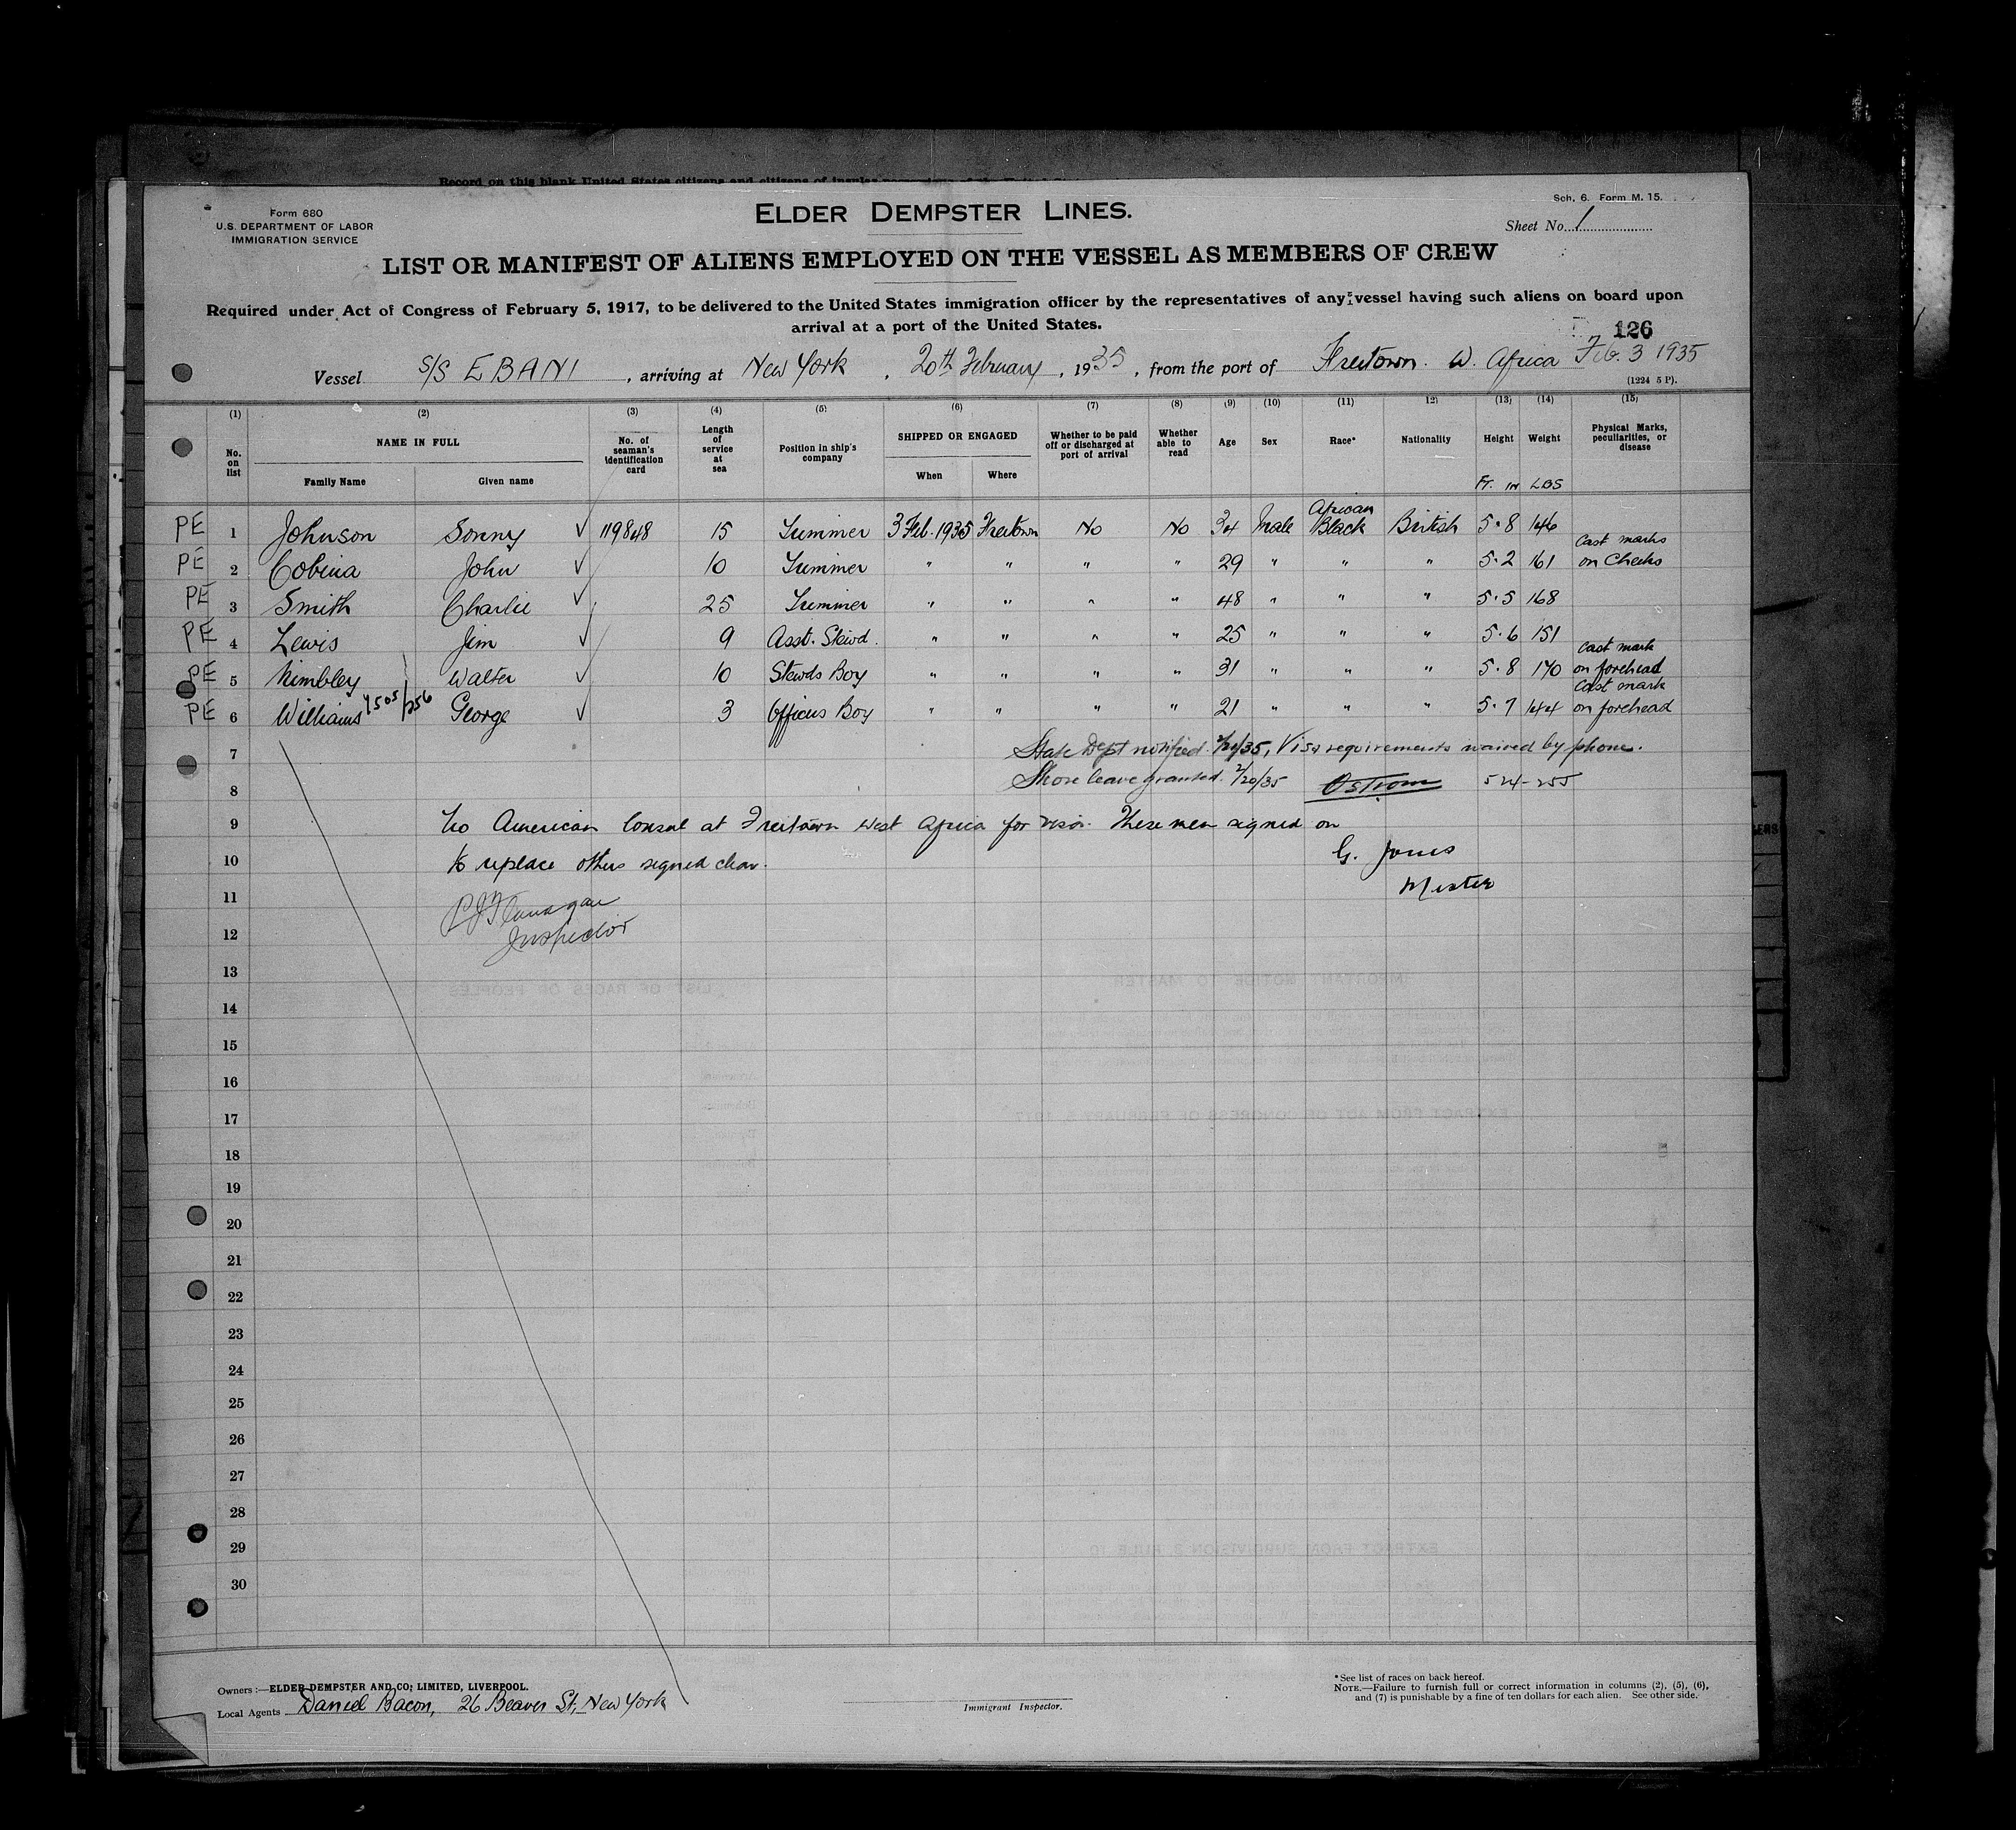 Form 680
U.S. DEPARTMENT OF LABOR
IMMIGRATION SERVICE
ELDER DEMPSTER LINES.
Sch. 6. Form M. 15.
Sheet No. 1
LIST OR MANIFEST OF ALIENS EMPLOYED ON THE VESSEL AS MEMBERS OF CREW
Required under Act of Congress of February 5, 1917, to be delivered to the United States immigration officer by the representatives of any vessel having such aliens on board upon
arrival at a port of the United States.
126
Vessel S/S EBANI, arriving at New York, 20th February, 1935, from the port of Freetown. W. Africa Feb. 3 1935
(1224 5 P).
(1) (2) (3) (4) (5) (6) (7) (8) (9) (10) (11) (12) (13) (14) (15)
No. on list NAME IN FULL Family Name Given name No. of seaman's identification card Length of service at sea Position in ship's company SHIPPED OR ENGAGED When Where Whether to be paid off or discharged at port of arrival Whether able to read Age Sex Race* Nationality Height Weight Physical Marks, peculiarities, or disease
Ft. IN LBS
PE 1 Johnson Sonny ✓ 119848 15 Trimmer 3 Feb. 1935 Freetown No No 34 Male African Black British 5.8 146
PE 2 Cobina John ✓ 10 Trimmer " " " " 29 " " " 5.2 161 Cast marks on Cheeks
PE 3 Smith Charlie ✓ 25 Trimmer " " " " 48 " " " 5.5 168
PE 4 Lewis Jim ✓ 9 Asst. Stewd. " " " " 25 " " " 5.6 151
PE 5 Nimbley Walter ✓ 10 Stewds Boy " " " " 31 " " " 5.8 170 Cast mark on forehead
PE 6 Williams George ✓ 3 Officers Boy " " " " 21 " " " 5.7 144 Cast mark on forehead
7 State Dept notified 2/20/35, Visa requirements waived by phone.
8 Shore leave granted. 2/20/35 Ostrom 524-255
9 No American Consul at Freetown West Africa for visa. These men signed on
10 to replace others signed clear. G. Jones
11 Master
12 Inspector
13
14
15
16
17
18
19
20
21
22
23
24
25
26
27
28
29
30
Owners :—ELDER DEMPSTER AND CO; LIMITED, LIVERPOOL.
Local Agents Daniel Bacon, 26 Beaver St, New York
Immigrant Inspector.
*See list of races on back hereof.
NOTE.—Failure to furnish full or correct information in columns (2), (5), (6),
and (7) is punishable by a fine of ten dollars for each alien. See other side.